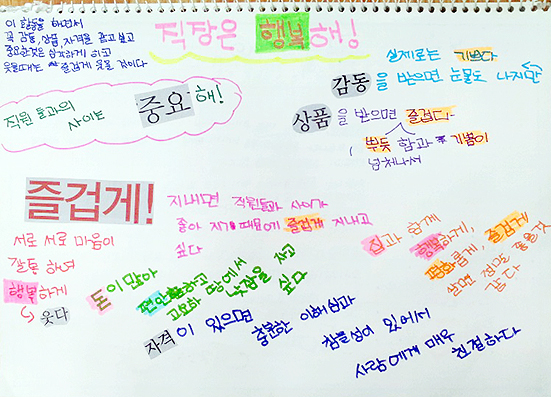 직장은 행복해!
이 활동을 하면서
꼭 감동, 상품, 자격을 갖고 싶고
중요한것은 심각하게 하고
웃을때는 즐겁게 웃을 것이다
실제로는 기쁘다
감동을 받으면 눈물도 나지만
상품을 받으면 즐겁다
뿌듯함과 기쁨이
넘쳐나서
직원들과의
사이는
중요해!
즐겁게!
지내면 직원들과 사이가
좋아 지기 때문에 즐겁게 지내고
싶다
서로 서로 마음이
잘통 하여
행복하게
웃다
돈이 많아
편안하고
고요한 땅에서
낮잠을 자고
싶다
집과 함께
행복하게,
평화롭게, 즐겁게
살면 집도 좋을것
같다
자격이 있으면
충분한 이해심과
참을성이 있어서
사람에게 매우
친절하다